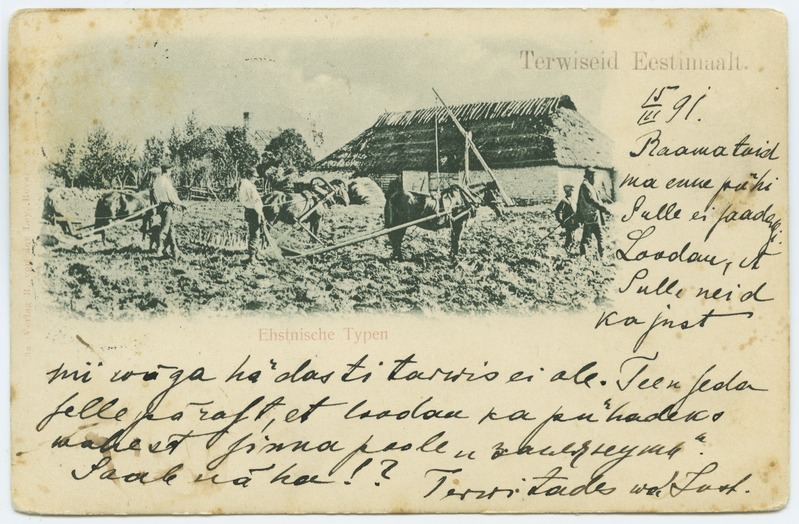 Terwiseid Eestimaalt.
15/III 91.
Raamatuid
ma enne pühi
Sulle ei saada.
Loodan, et
Sulle neid
ka just
Ehstnische Typen
nii wäga hädasti tarwis ei ole. Teen seda
selle pärast, et loodan ka pühadeks
wahest sinna poole
Saab näha!!?
Terwitades